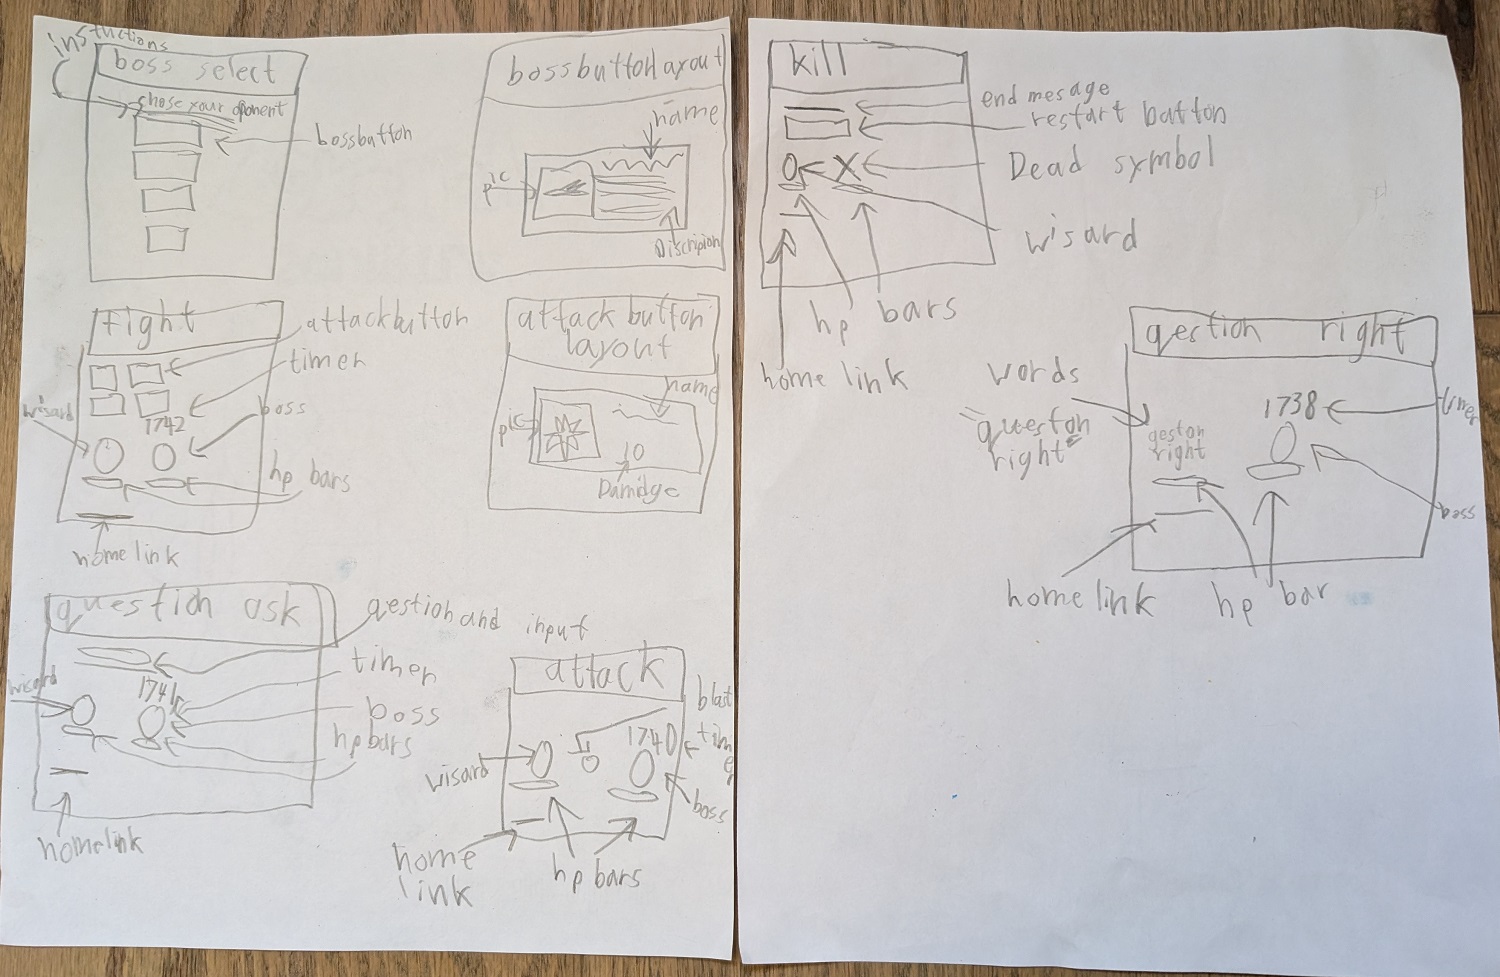 instuctions
boss select
chose your oponent
bossbutton
bossbuttonlayout
name
pic
Discription
fight
attackbutton
timer
wisard
boss
1742
hp bars
home link
attack button
layout
name
pic
10
Damidge
question ask
qestion and input
timer
wisard
1741
boss
hp bars
homelink
attack
blast
timer
1740
wisard
boss
home
link
hp bars
kill
end mesage
restart button
Dead symbol
wisard
hp bars
home link
qestion right
words
"queston
right"
1738
timer
qeston
right
boss
home link
hp bar